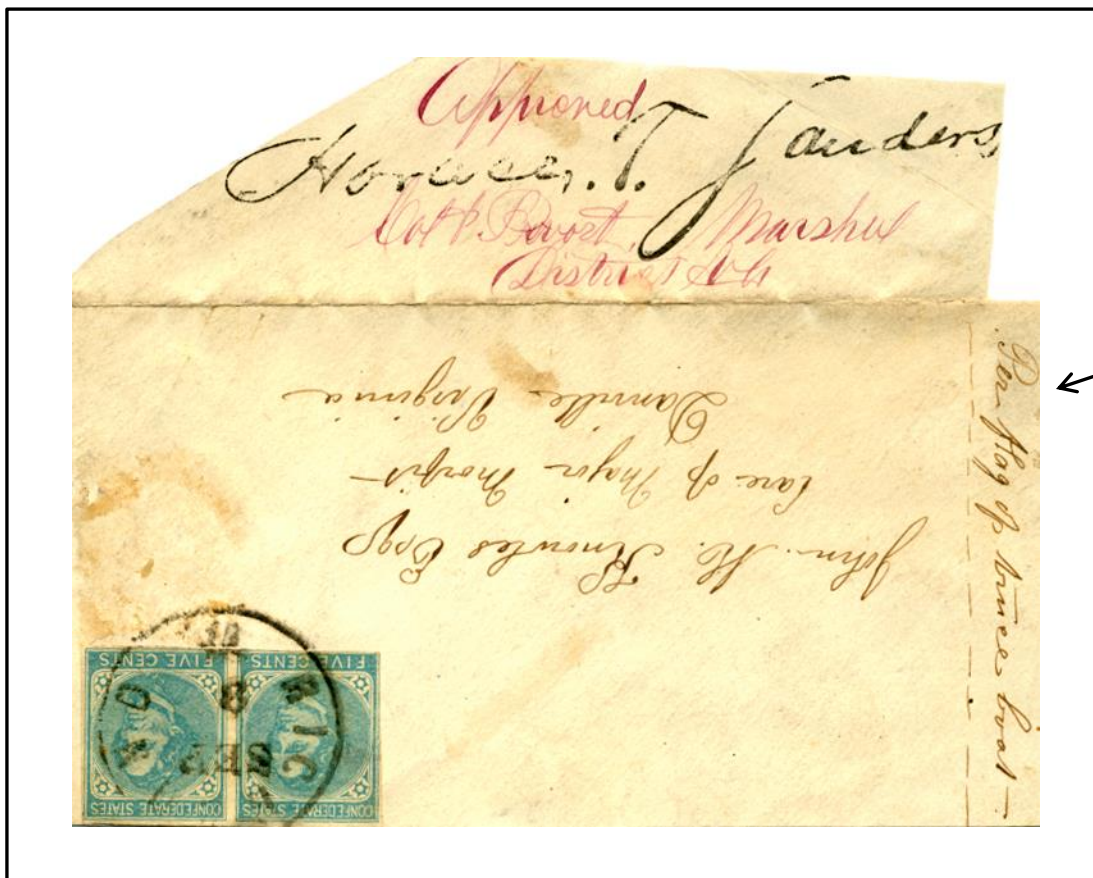 Approved
Horace. T. Sanders
Col & Provost Marshal
District
Per flag of truce boat –
John Knowles Esqr
Care of Major Morfit
Danville Virginia
RIC D
SEP
8
CONFEDERATE STATES
FIVE CENTS
CONFEDERATE STATES
FIVE CENTS